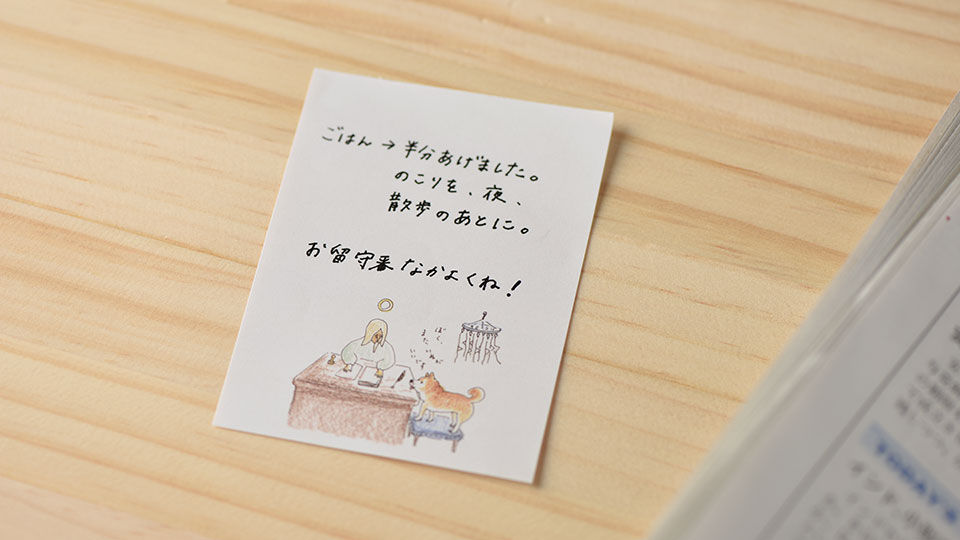 ごはん→半分あげました。
のこりを、夜、
散歩のあとに。
お留守番なかよくね!
ぼく、
また
いぬが
いいです